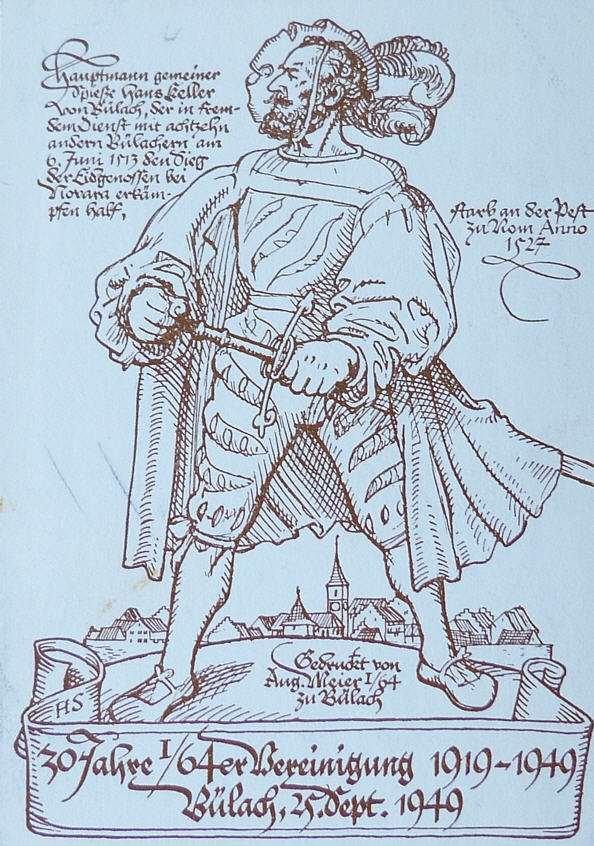 Hauptmann gemeiner
Spieße Hans Keller
von Bülach, der in frem-
dem Dienst mit achtzehn
andern Bülachern am
6. Juni 1513 den Sieg
der Eidgenossen bei
Novara erkäm-
pfen half,
starb an der Pest
zu Rom Anno
1527
Gedruckt von
Aug. Meier I/64
zu Bülach
HS
30 Jahre I/64er Vereinigung 1919-1949
Bülach, 25. Sept. 1949